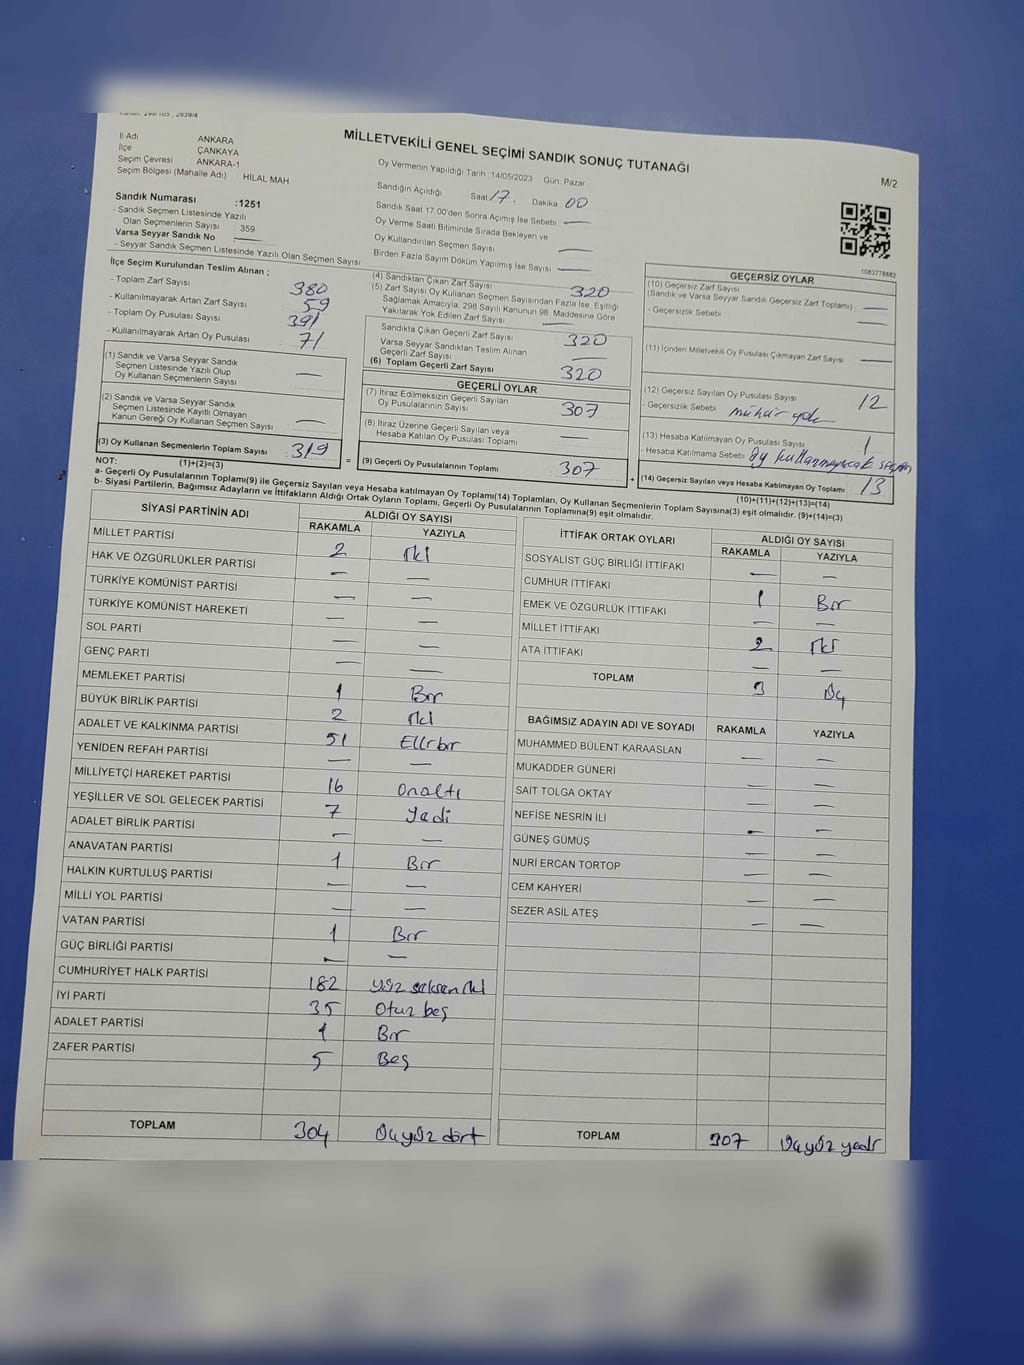 MİLLETVEKİLİ GENEL SEÇİMİ SANDIK SONUÇ TUTANAĞI
M/2
İl Adı ANKARA
İlçe ÇANKAYA
Seçim Çevresi : ANKARA-1
Seçim Bölgesi (Mahalle Adı) HİLAL MAH
Sandık Numarası :1251
- Sandık Seçmen Listesinde Yazılı
Olan Seçmenlerin Sayısı : 359
Varsa Seyyar Sandık No
- Seyyar Sandık Seçmen Listesinde Yazılı Olan Seçmen Sayısı
Oy Vermenin Yapıldığı Tarih :14/05/2023 Gün: Pazar
Sandığın Açıldığı Saat 17. Dakika 00
Sandık Saat 17.00'den Sonra Açımış İse Sebebi —
Oy Verme Saati Bitiminde Sırada Bekleyen ve
Oy Kullandırılan Seçmen Sayısı —
Birden Fazla Sayım Döküm Yapılmış İse Sayısı —
1083778682
İlçe Seçim Kurulundan Teslim Alınan ;
- Toplam Zarf Sayısı 380
- Kullanılmayarak Artan Zarf Sayısı 59
- Toplam Oy Pusulası Sayısı 391
- Kullanılmayarak Artan Oy Pusulası 71
(1) Sandık ve Varsa Seyyar Sandık
Seçmen Listesinde Yazılı Olup
Oy Kullanan Seçmenlerin Sayısı —
(2) Sandık ve Varsa Seyyar Sandık
Seçmen Listesinde Kayıtlı Olmayan
Kanun Gereği Oy Kullanan Seçmen Sayısı —
(3) Oy Kullanan Seçmenlerin Toplam Sayısı 319
(1)+(2)=(3)
(4) Sandıktan Çıkan Zarf Sayısı 320
(5) Zarf Sayısı Oy Kullanan Seçmen Sayısından Fazla İse, Eşitliği
Sağlamak Amacıyla, 298 Sayılı Kanunun 98. Maddesine Göre
Yakılarak Yok Edilen Zarf Sayısı —
Sandıkta Çıkan Geçerli Zarf Sayısı 320
Varsa Seyyar Sandıktan Teslim Alınan
Geçerli Zarf Sayısı —
(6) Toplam Geçerli Zarf Sayısı 320
GEÇERLİ OYLAR
(7) İtiraz Edilmeksizin Geçerli Sayılan
Oy Pusulalarının Sayısı 307
(8) İtiraz Üzerine Geçerli Sayılan veya
Hesaba Katılan Oy Pusulası Toplamı —
= (9) Geçerli Oy Pusulalarının Toplamı 307
GEÇERSİZ OYLAR
(10) Geçersiz Zarf Sayısı
(Sandık ve Varsa Seyyar Sandık Geçersiz Zarf Toplamı) —
- Geçersizlik Sebebi —
(11) İçinden Milletvekili Oy Pusulası Çıkmayan Zarf Sayısı —
(12) Geçersiz Sayılan Oy Pusulası Sayısı 12
- Geçersizlik Sebebi mühür yok
(13) Hesaba Katılmayan Oy Pusulası Sayısı 1
- Hesaba Katılmama Sebebi oy kullanmayacak seçmen
+ (14) Geçersiz Sayılan veya Hesaba Katılmayan Oy Toplamı 13
(10)+(11)+(12)+(13)=(14)
NOT:
a- Geçerli Oy Pusulalarının Toplamı(9) ile Geçersiz Sayılan veya Hesaba katılmayan Oy Toplamı(14) Toplamları, Oy Kullanan Seçmenlerin Toplam Sayısına(3) eşit olmalıdır. (9)+(14)=(3)
b- Siyasi Partilerin, Bağımsız Adayların ve İttifakların Aldığı Ortak Oyların Toplamı, Geçerli Oy Pusulalarının Toplamına(9) eşit olmalıdır.
SİYASİ PARTİNİN ADI ALDIĞI OY SAYISI
RAKAMLA YAZIYLA
MİLLET PARTİSİ 2 İki
HAK VE ÖZGÜRLÜKLER PARTİSİ — —
TÜRKİYE KOMÜNİST PARTİSİ — —
TÜRKİYE KOMÜNİST HAREKETİ — —
SOL PARTİ — —
GENÇ PARTİ — —
MEMLEKET PARTİSİ 1 Bir
BÜYÜK BİRLİK PARTİSİ 2 İki
ADALET VE KALKINMA PARTİSİ 51 Ellibir
YENİDEN REFAH PARTİSİ — —
MİLLİYETÇİ HAREKET PARTİSİ 16 Onaltı
YEŞİLLER VE SOL GELECEK PARTİSİ 7 Yedi
ADALET BİRLİK PARTİSİ — —
ANAVATAN PARTİSİ 1 Bir
HALKIN KURTULUŞ PARTİSİ — —
MİLLİ YOL PARTİSİ — —
VATAN PARTİSİ 1 Bir
GÜÇ BİRLİĞİ PARTİSİ — —
CUMHURİYET HALK PARTİSİ 182 yüz seksen iki
İYİ PARTİ 35 Otuz beş
ADALET PARTİSİ 1 Bir
ZAFER PARTİSİ 5 Beş
TOPLAM 304 Üçyüz dört
İTTİFAK ORTAK OYLARI ALDIĞI OY SAYISI
RAKAMLA YAZIYLA
SOSYALİST GÜÇ BİRLİĞİ İTTİFAKI — —
CUMHUR İTTİFAKI 1 Bir
EMEK VE ÖZGÜRLÜK İTTİFAKI — —
MİLLET İTTİFAKI 2 İki
ATA İTTİFAKI — —
TOPLAM 3 Üç
BAĞIMSIZ ADAYIN ADI VE SOYADI RAKAMLA YAZIYLA
MUHAMMED BÜLENT KARAASLAN — —
MUKADDER GÜNERİ — —
SAİT TOLGA OKTAY — —
NEFİSE NESRİN İLİ — —
GÜNEŞ GÜMÜŞ — —
NURİ ERCAN TORTOP — —
CEM KAHYERİ — —
SEZER ASİL ATEŞ — —
TOPLAM 307 Üçyüz yedi